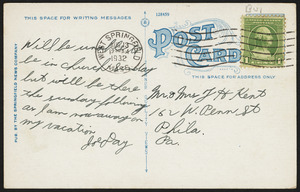 THIS SPACE FOR WRITING MESSAGES
128495
POST CARD
WEST SPRINGFIELD
1932
MASS.
THIS SPACE FOR ADDRESS ONLY
PUB. BY THE SPRINGFIELD NEWS COMPANY
Will be unable to
be in church Sunday
but will be there
the Sunday following
as I am now away on
my vacation
Mr & Mrs F H Kent
162 W. Penn St
Phila.
Pa.